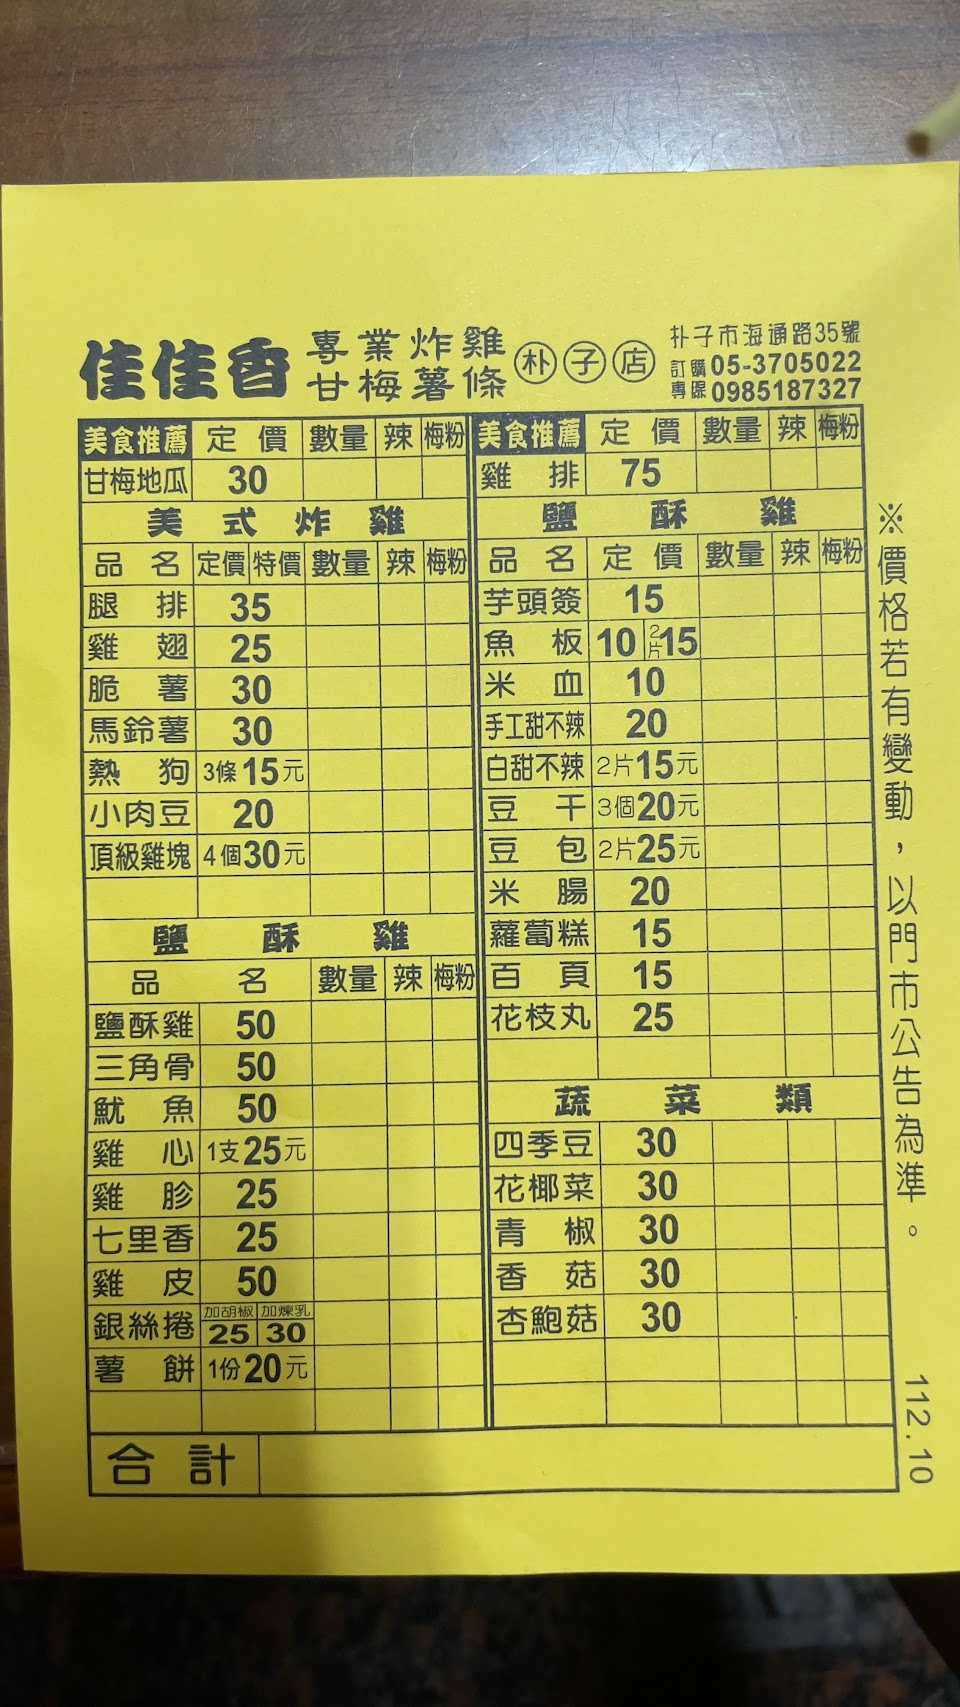 佳佳香 專業炸雞 甘梅薯條 朴子店
朴子市海通路35號
訂購專線 05-3705022
0985187327
美食推薦 定價 數量 辣 梅粉
甘梅地瓜 30
美式炸雞
品名 定價 特價 數量 辣 梅粉
腿排 35
雞翅 25
脆薯 30
馬鈴薯 30
熱狗 3條15元
小肉豆 20
頂級雞塊 4個30元
鹽酥雞
品名 數量 辣 梅粉
鹽酥雞 50
三角骨 50
魷魚 50
雞心 1支25元
雞胗 25
七里香 25
雞皮 50
銀絲捲 加胡椒 25 加煉乳 30
薯餅 1份20元
美食推薦 定價 數量 辣 梅粉
雞排 75
鹽酥雞
品名 定價 數量 辣 梅粉
芋頭簽 15
魚板 10 2片15
米血 10
手工甜不辣 20
白甜不辣 2片15元
豆干 3個20元
豆包 2片25元
米腸 20
蘿蔔糕 15
百頁 15
花枝丸 25
蔬菜類
四季豆 30
花椰菜 30
青椒 30
香菇 30
杏鮑菇 30
合計
※價格若有變動，以門市公告為準。
112.10